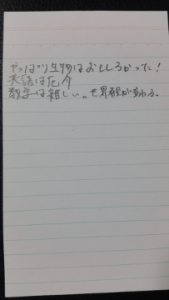 やっぱり生物はおもしろかった!
英語は厄介
数学は難しい。世界観が変わる。